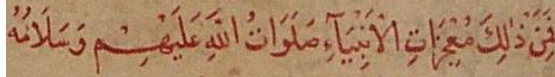 فَمِنْ ذٰلِكَ مُعْجِزَاتِ الْاَنْبِيَآءِ صَلَوَاتُ اللّٰهِ عَلَيْهِمْ وَسَلَامُهُ